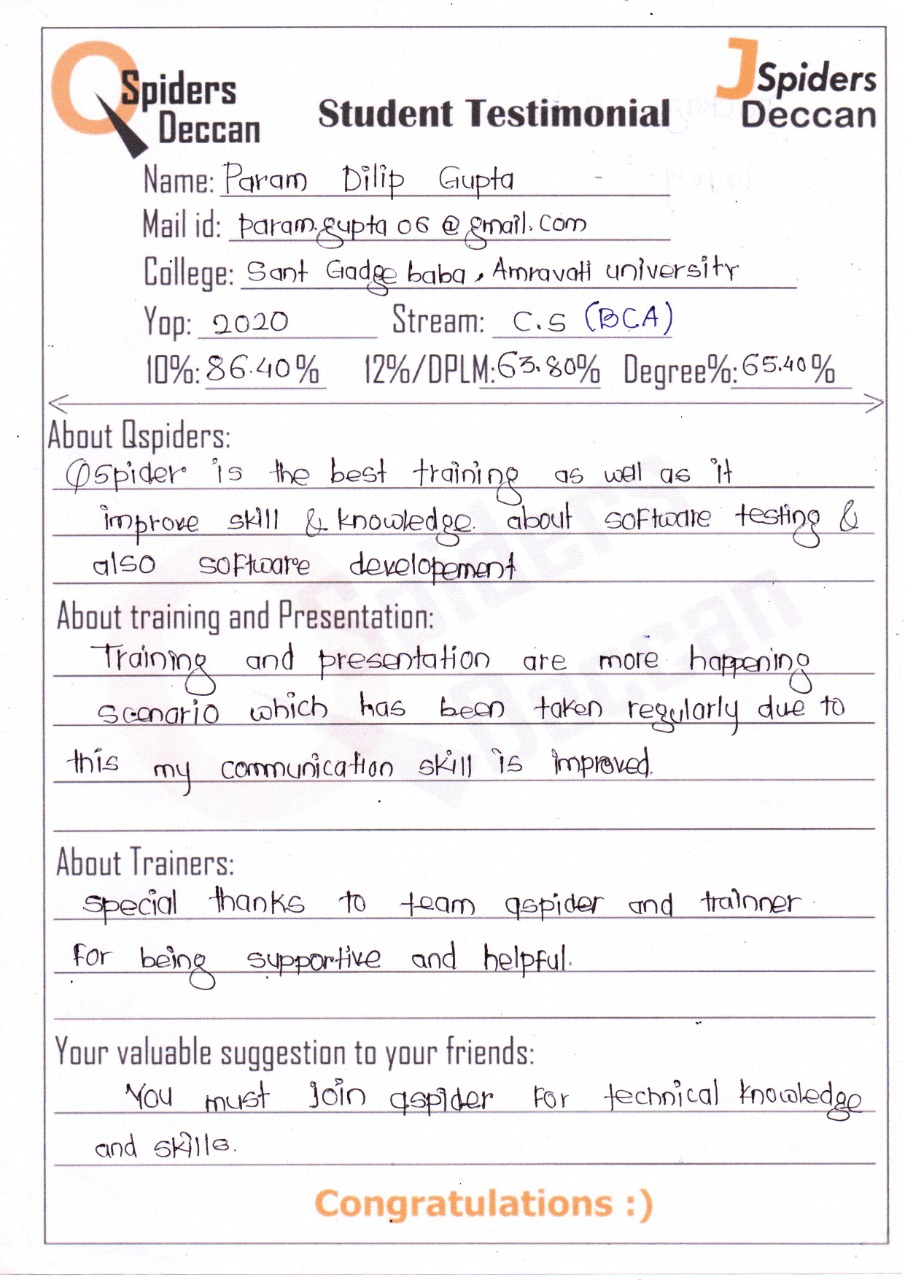 QSpiders
Deccan
Student Testimonial
JSpiders
Deccan
Name: Param Dilip Gupta
Mail id: param.gupta06@gmail.com
College: Sant Gadge baba, Amravati university
Yop: 2020 Stream: C.S (BCA)
10%: 86.40% 12%/DPLM: 63.80% Degree%: 65.40%
About Qspiders:
QSpider is the best training as well as it
improve skill & knowledge about software testing &
also software developement
About training and Presentation:
Training and presentation are more happening
scenario which has been taken regularly due to
this my communication skill is improved.
About Trainers:
special thanks to team qspider and trainner
for being supportive and helpful.
Your valuable suggestion to your friends:
You must join qspider for technical knowledge
and skills.
Congratulations :)